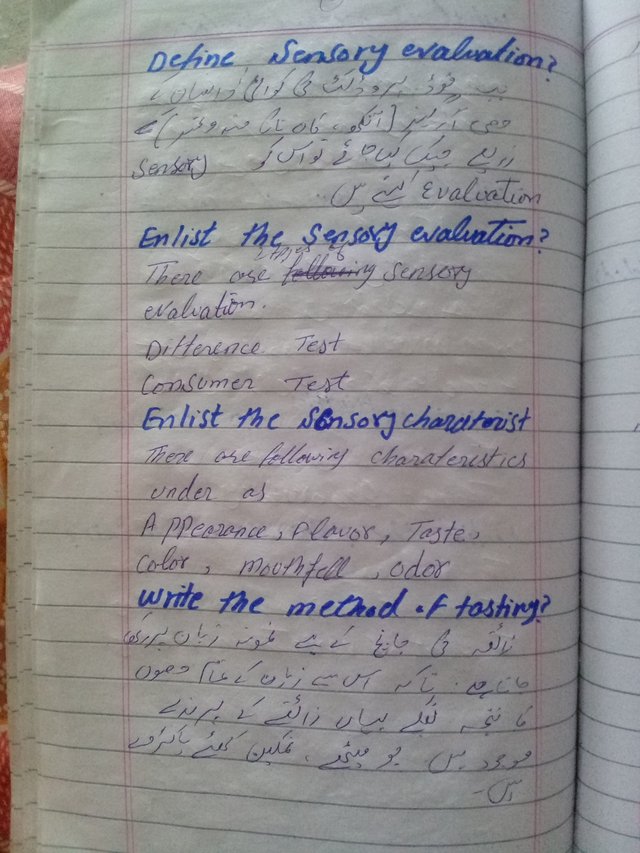 Define Sensory evaluation?
جب فوڈ پروڈکٹ کی کوالٹی انسان کے
حصی آرگنز (آنکھ، کان ناک منہ وغیرہ) کے
ذریعے چیک کیا جائے تو اس کو Sensory
Evaluation کہتے ہیں
Enlist the Sensory evaluation?
There are types of Sensory
evaluation.
Difference Test
Consumer Test
Enlist the Sensory charaterist
There are following charateristics
under as
Appearance, Flavor, Taste,
Color, mouthfell, odor
Write the method of tasting?
ذائقہ کی جانچ کے لیے نمونہ زبان پر رکھ
جاتا ہے۔ تاکہ اس سے زبان کے تمام حصوں
کا نتیجہ نکلے یہاں ذائقے کے
موجود ہیں جو میٹھے، نمکین کھٹے یا کڑوے
ہیں۔